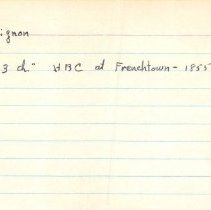 ignon
3 ch." HBC at Frenchtown - 1855